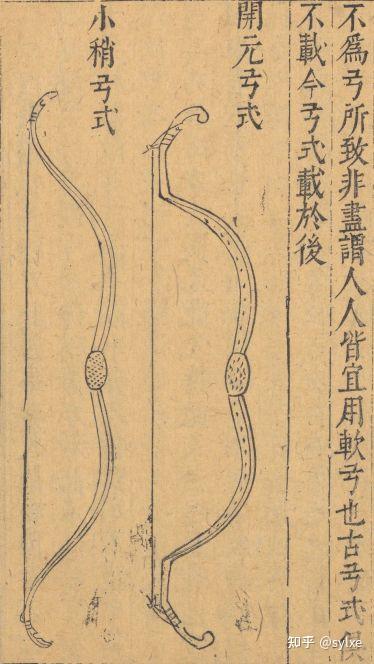 不爲弓所致非盡謂人人皆宜用軟弓也古弓式俱
不載今弓式載於後
開元弓式
小稍弓式
知乎 @sylxe